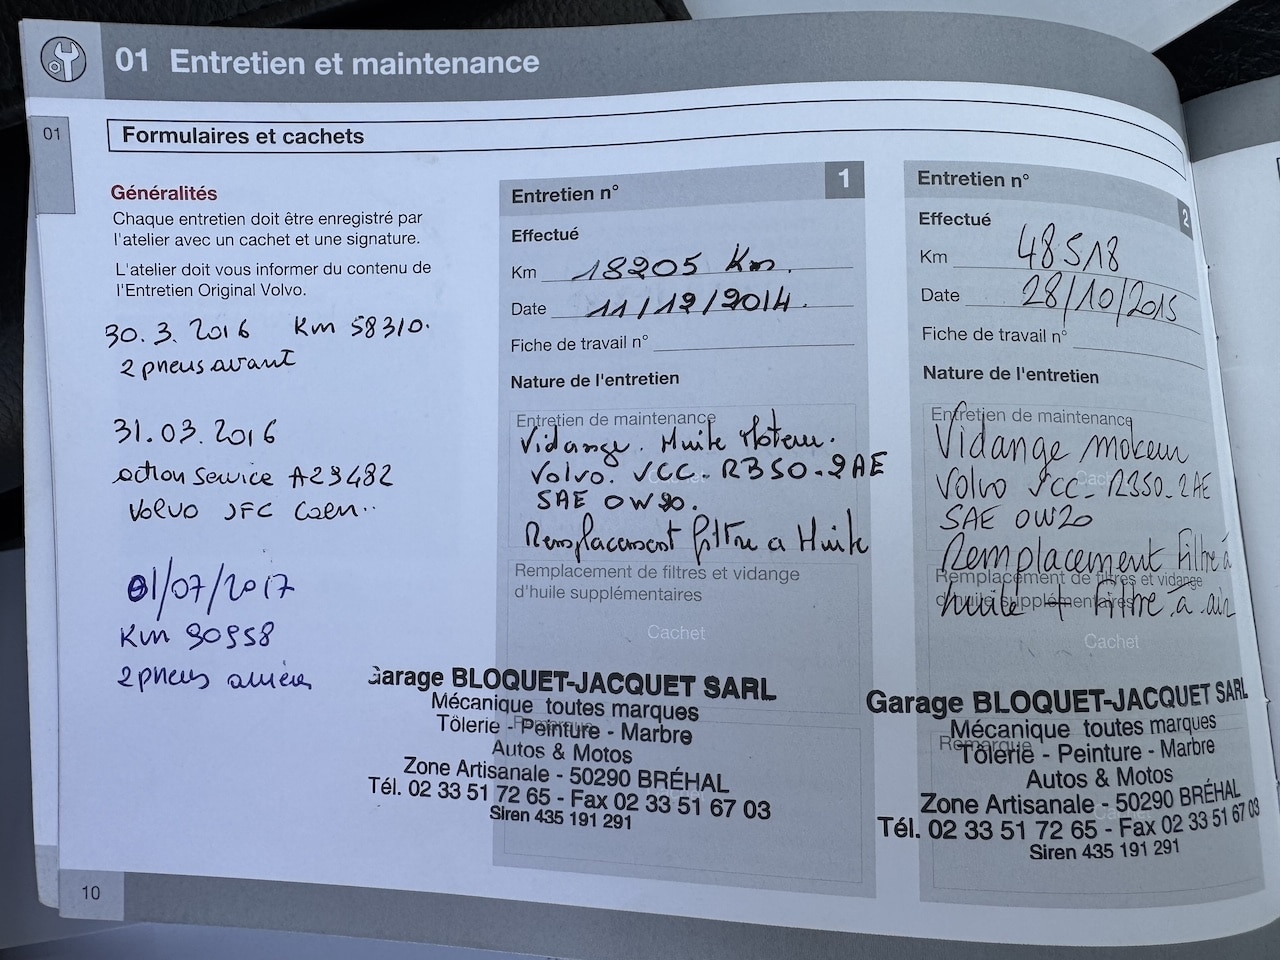 01 Entretien et maintenance
01
Formulaires et cachets
Généralités
Chaque entretien doit être enregistré par
l'atelier avec un cachet et une signature.
L'atelier doit vous informer du contenu de
l'Entretien Original Volvo.
30.3.2016 Km 58310.
2 pneus avant
31.03.2016
action Service A23482
Volvo JFC Caen..
01/07/2017
Km 90958
2 pneus arrière
10
Entretien n° 1
Effectué
Km 18205 Km.
Date 11/12/2014.
Fiche de travail n°
Nature de l'entretien
Entretien de maintenance
Vidange. Huile Moteur.
Volvo. VCC-R350-2AE
Cachet
SAE 0W20.
Remplacement filtre a Huile
Remplacement de filtres et vidange
d'huile supplémentaires
Cachet
Garage BLOQUET-JACQUET SARL
Mécanique toutes marques
Remarque
Tôlerie - Peinture - Marbre
Autos & Motos
Zone Artisanale - 50290 BRÉHAL
Tél. 02 33 51 72 65 - Fax 02 33 51 67 03
Siren 435 191 291
Entretien n° 2
Effectué
Km 48518
Date 28/10/2015
Fiche de travail n°
Nature de l'entretien
Entretien de maintenance
Vidange moteur
Volvo VCC-R350-2AE
Cachet
SAE 0W20
Remplacement Filtre à
Remplacement de filtres et vidange
d'huile supplémentaires
huile + Filtre à air
Cachet
Garage BLOQUET-JACQUET SARL
Mécanique toutes marques
Remarque
Tôlerie - Peinture - Marbre
Autos & Motos
Zone Artisanale - 50290 BRÉHAL
Cachet
Tél. 02 33 51 72 65 - Fax 02 33 51 67 03
Siren 435 191 291